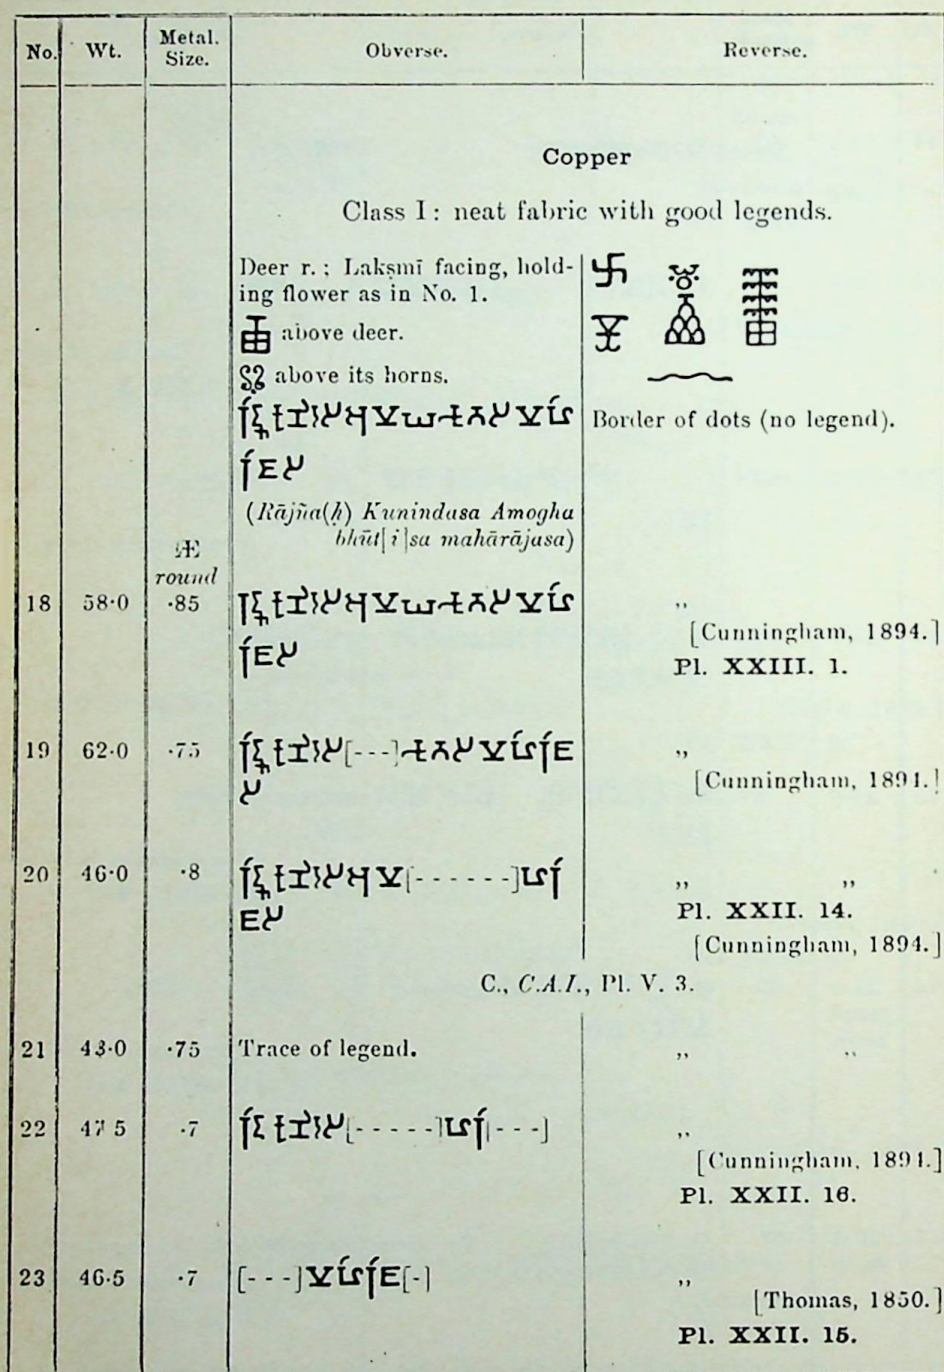 No. Wt. Metal. Size. Obverse. Reverse.
Copper
Class I: neat fabric with good legends.
Deer r.; Lakṣmī facing, hold-
ing flower as in No. 1.
above deer.
above its horns.
Border of dots (no legend).
(Rājña(ḥ) Kunindasa Amogha
bhūt[i]sa mahārājasa)
Æ
round
18 58·0 ·85 ,,
[Cunningham, 1894.]
Pl. XXIII. 1.
19 62·0 ·75 ,,
[Cunningham, 1894.]
20 46·0 ·8 ,, ,,
Pl. XXII. 14.
[Cunningham, 1894.]
C., C.A.I., Pl. V. 3.
21 43·0 ·75 Trace of legend. ,, ,,
22 47·5 ·7 ,,
[Cunningham, 1894.]
Pl. XXII. 16.
23 46·5 ·7 ,,
[Thomas, 1850.]
Pl. XXII. 15.